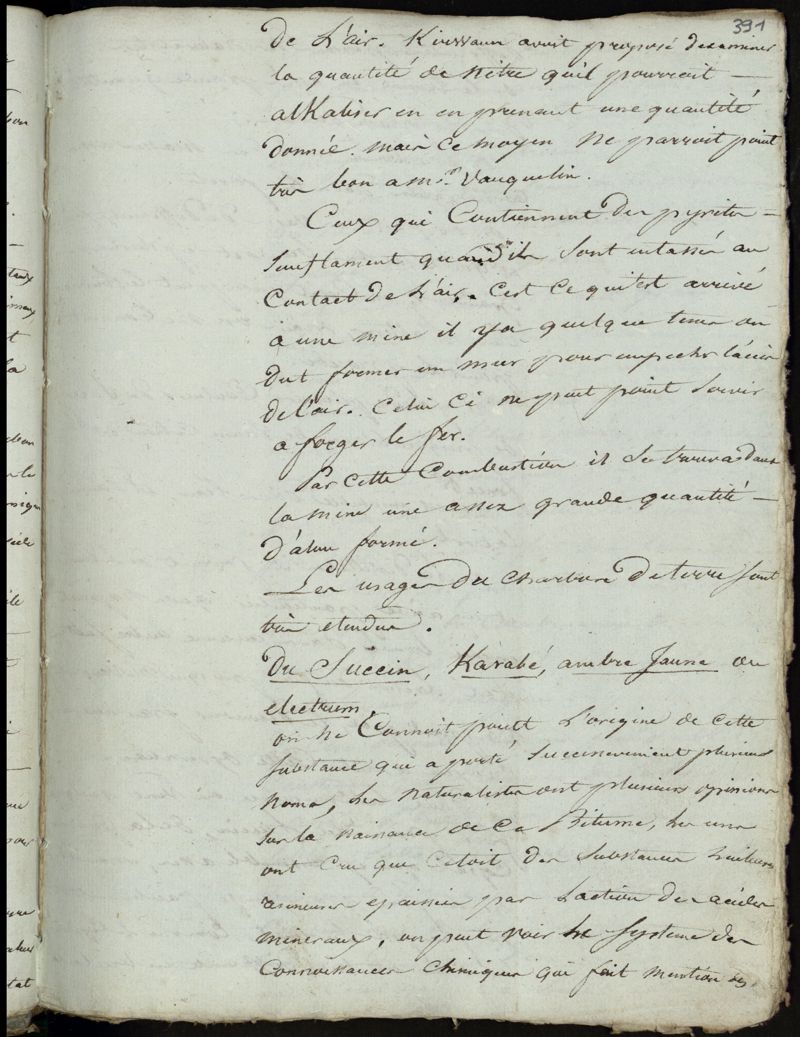 391
de L'air. Kirwaan avoit proposé d'examiner
la quantité de nitre quil pourroit —
alKaliser en en prenant une quantité
donnée. mais ce moyen ne parroit point
très bon a mr. Vauquelin.
Ceux qui Contiennent des pyrites —
senflament quand ils sont entassés au
Contact de L'air. C'est ce qui est arrivé
a une mine il y a quelque tems on
dut former un mur pour empecher l'accès
de l'air. Celui ci ne peut point servir
a forger le fer.
Par cette Combustion il se trouva dans
la mine une assez grande quantité —
d'alun formé.
Les usages du charbon de terre sont
très etendus.
Du Succin, Karabé, ambre Jaune ou
electrum.
on ne Connoit point L'origine de cette
substance qui a porté Successivement plusieurs
noms, les naturalistes ont plusieurs opinions
sur la naissance de ce Bitume, les uns
ont cru que cetoit des substances huileuses
resineuses epaissies par L'action des acides
mineraux, on peut voir le Systeme des
Connoissances chimiques qui fait mention des